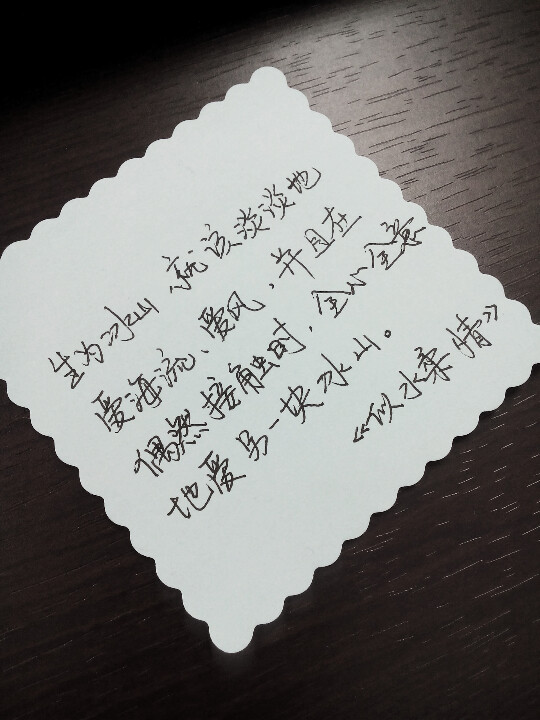 生为冰山 就该淡淡地
爱海流、爱风，并且在
偶然接触时，全心全意
地爱另一块冰山。
《似水柔情》